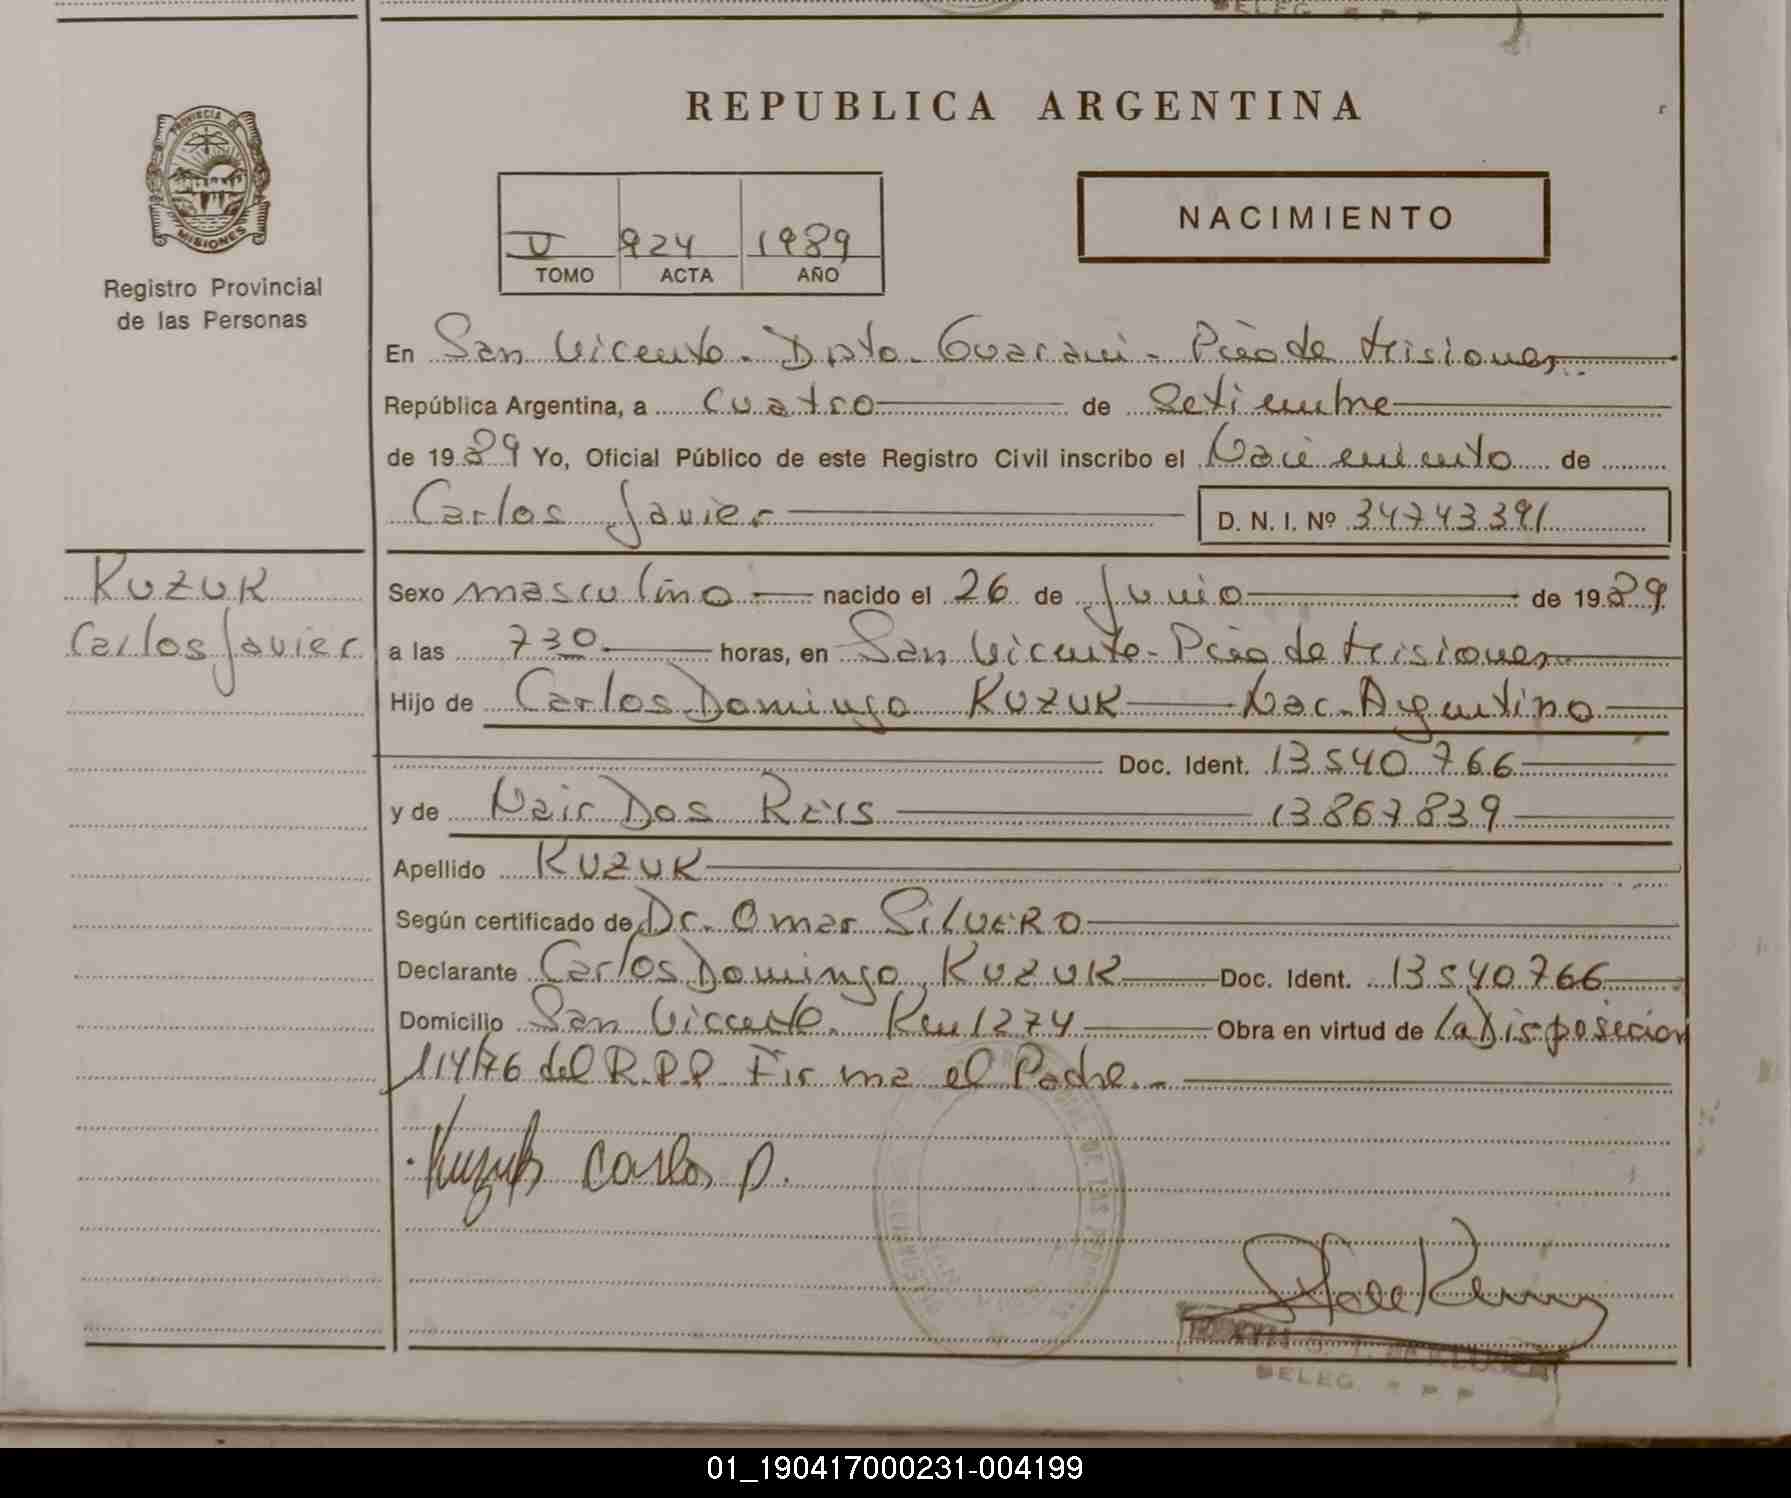 REPUBLICA ARGENTINA
PROVINCIA DE
MISIONES
Registro Provincial
de las Personas
V 924 1989
TOMO ACTA AÑO
NACIMIENTO
En San Vicente - Dpto - Guarani - Pcia de Misiones
República Argentina, a cuatro de Setiembre
de 1989 Yo, Oficial Público de este Registro Civil inscribo el Nacimiento de
Carlos Javier D. N. I. Nº 34743391
KUZUK
Carlos Javier
Sexo masculino nacido el 26 de Junio de 1989
a las 730 horas, en San Vicente - Pcia de Misiones
Hijo de Carlos Domingo KUZUK Nac. Argentino
Doc. Ident. 13540766
y de Nair Dos Reis 13867839
Apellido KUZUK
Según certificado de Dr. Omar SILVERO
Declarante Carlos Domingo KUZUK Doc. Ident. 13540766
Domicilio San Vicente. Km 1274 Obra en virtud de la Disposicion
114/76 del R.P.P. Firma el Padre.-
Kuzuk Carlos D.
DELEG. R P P
01_190417000231-004199